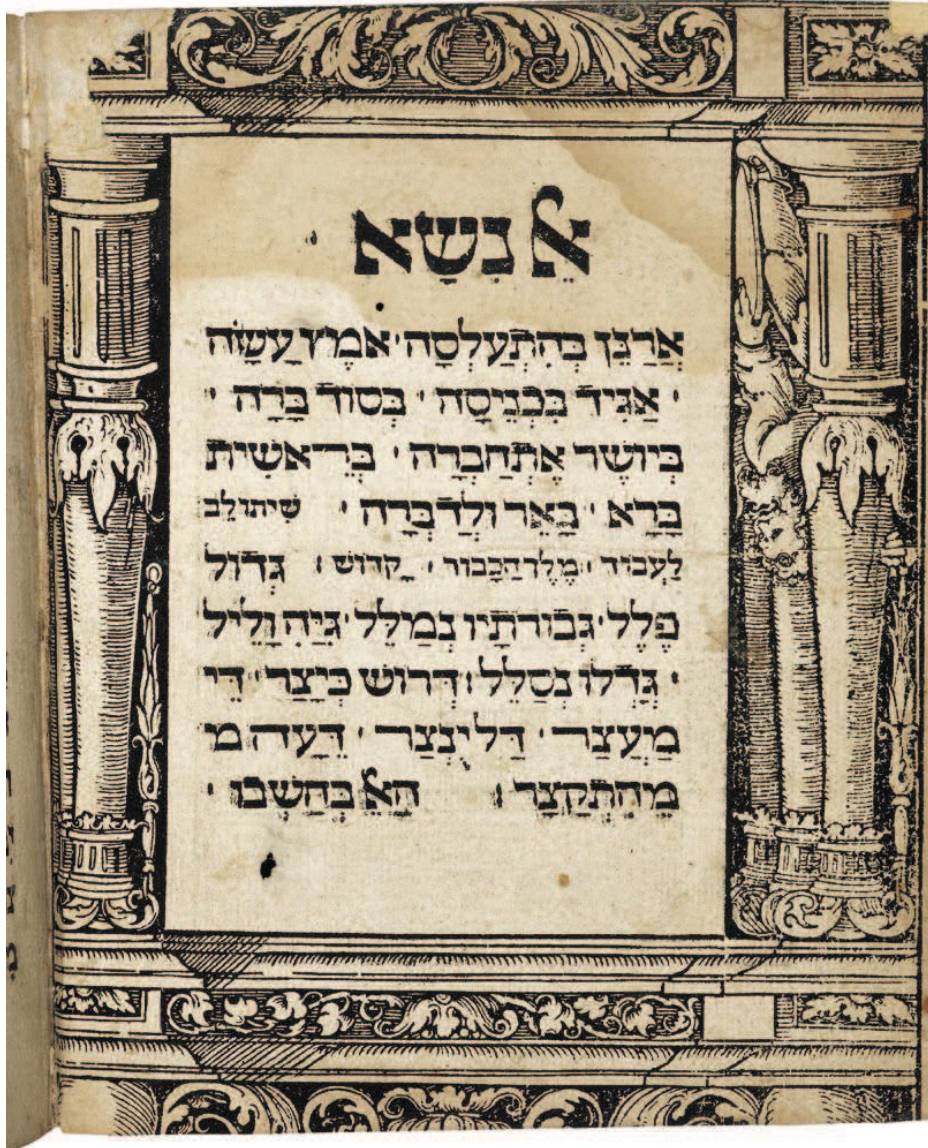 אֵ נִשָׂא
אֲרַנֵּן בְּהִתְעַלְסָה · אֹמֶץ עֲשָׂה
· אַגִּיד בִּכְנִיסָה · בְּסוֹד בָּרָה ·
בְּיוֹשֶׁר אֶתְחַבְּרָה · בְּרֵאשִׁית
בָּרָא · בָּאֵר וְלַדְבְּרָה ·
לַעֲבִיד · מֶלֶךְ הַכָּבוֹד · קָדוֹשׁ · גְּדוֹל
פֶּלֶל · גְּבוּרֹתָיו נְמַלֵּל · גֵּיהּ וָלֵיל
· גָּדְלוֹ נְסַלֵּל · דְּרוֹשׁ כְּיָצַר · דֵּי
מַעֲצַר · דַּלְיִנְצַר · דֵּעָה מ
מֵהִתְקַצֵּר · הָאֵל בְּחָשְׁבוֹ ·